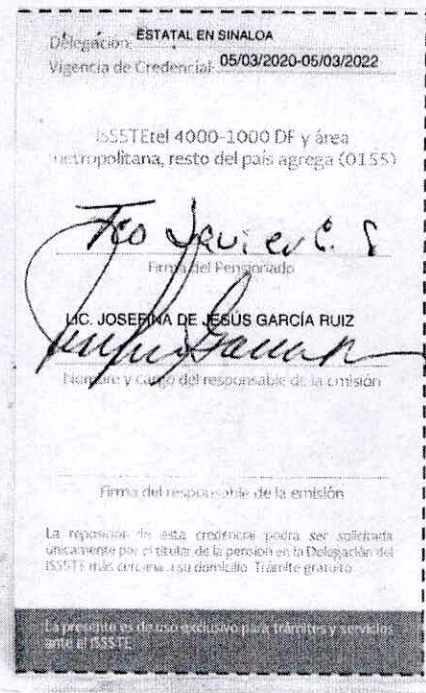 Delegación: ESTATAL EN SINALOA
Vigencia de Credencial: 05/03/2020-05/03/2022
ISSSTEtel 4000-1000 DF y área
metropolitana, resto del país agrega (0155)
Fco Javier C. S
Firma del Pensionado
LIC. JOSEFINA DE JESÚS GARCÍA RUIZ
Nombre y cargo del responsable de la emisión
Firma del responsable de la emisión
La reposición de esta credencial podrá ser solicitada
únicamente por el titular de la pensión en la Delegación del
ISSSTE más cercana a su domicilio. Trámite gratuito
La presente es de uso exclusivo para trámites y servicios
ante el ISSSTE